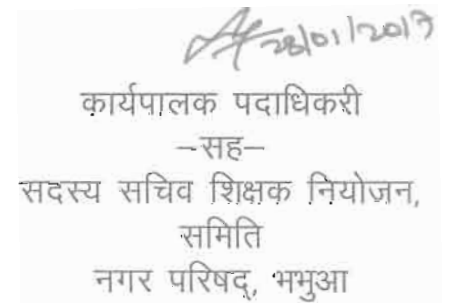 28/01/2017
कार्यपालक पदाधिकरी
–सह–
सदस्य सचिव शिक्षक नियोजन,
समिति
नगर परिषद्, भभुआ